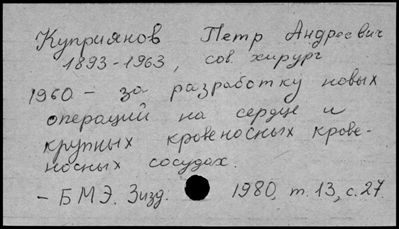 Куприянов Петр Андреевич
1893-1963, сов. хирург
1960 - за разработку новых
операций на сердце и
крупных кровеносных крове-
носных сосудах.
- БМЭ. 3изд. 1980, т. 13, с. 27.